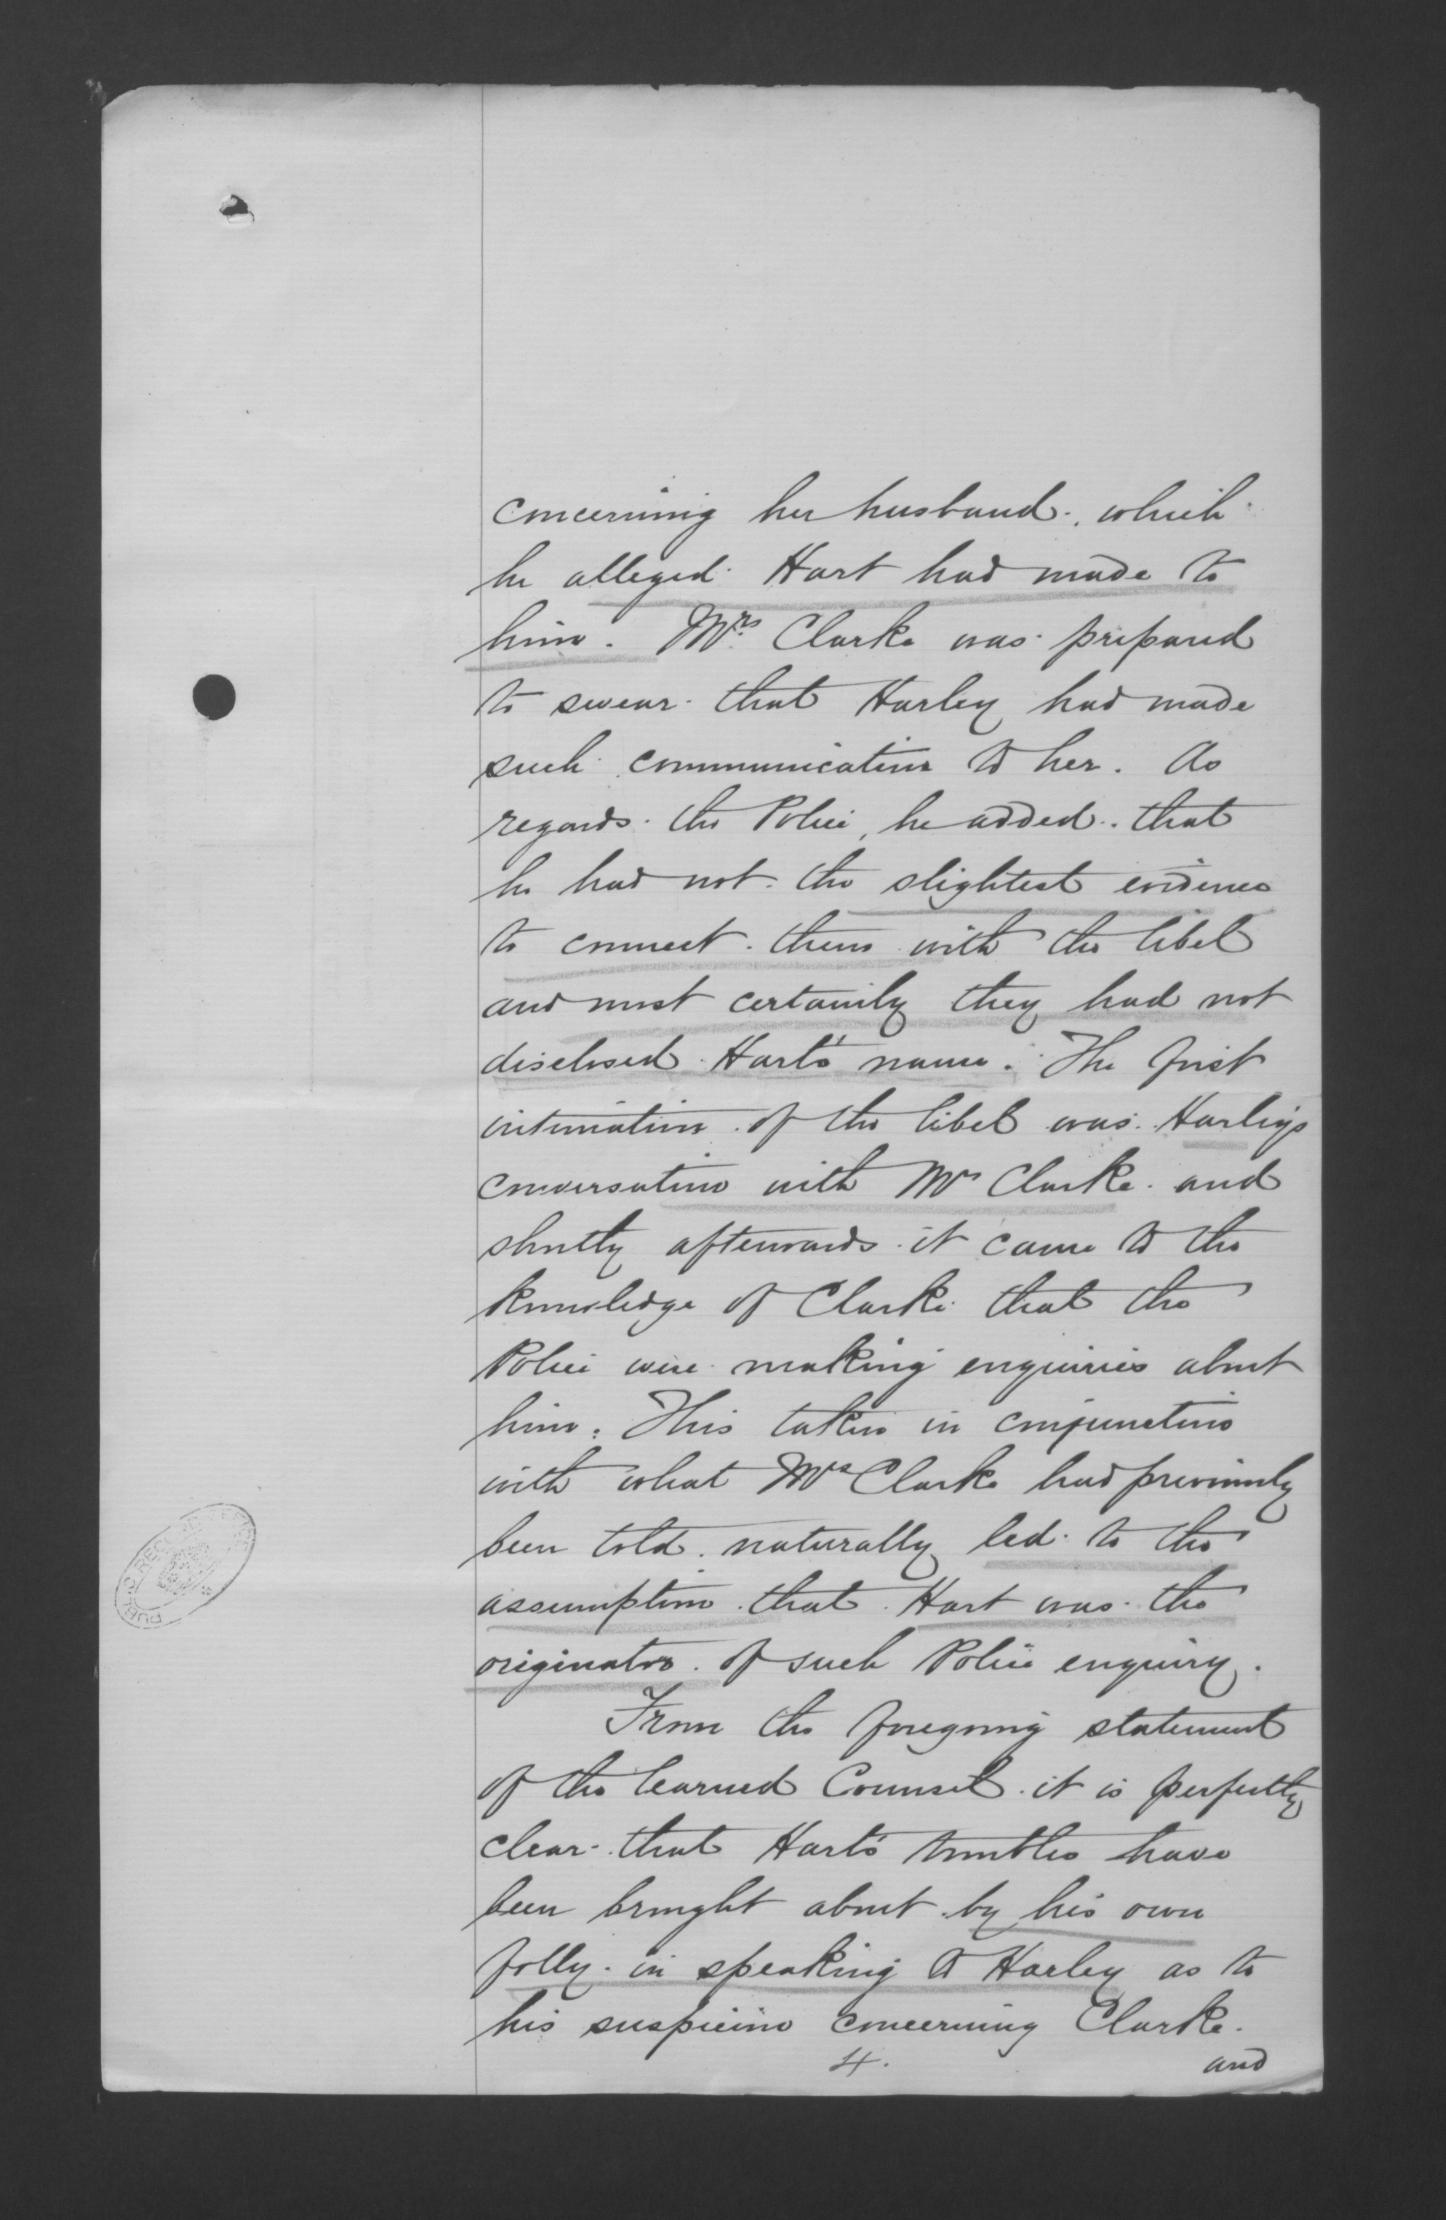 concerning her husband, which
he alleged Hart had made to
him. Mrs Clarke was prepared
to swear that Harley had made
such communication to her. As
regards the Police, he added that
he had not the slightest evidence
to connect them with the libel
and most certainly they had not
disclosed Hart's name. The first
intimation of the libel was Harley's
conversation with Mrs Clarke and
shortly afterwards it came to the
knowledge of Clarke that the
Police were making enquiries about
him. This taken in conjunction
with what Mrs Clarke had previously
been told naturally led to the
assumption that Hart was the
originator of such Police enquiry.
From the foregoing statement
of the learned Counsel it is perfectly
clear that Hart's troubles have
been brought about by his own
folly in speaking to Harley as to
his suspicion concerning Clarke
4. and
PUBLIC RECORD OFFICE